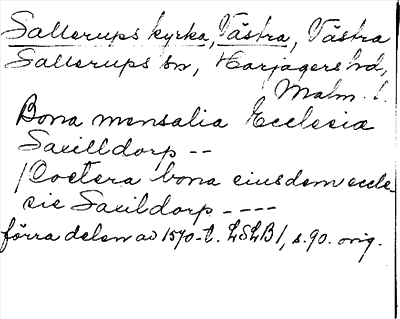 Sallerups kyrka, Västra, Västra
Sallerups sn, Harjagers hd,
Malm. l.
Bona mensalia Ecclesia
Saxilldorp --
/Coetera bona eiusdem eccle-
sie Saxildorp ----
förra delen av 1570-t. LSLB/, s. 90. orig.